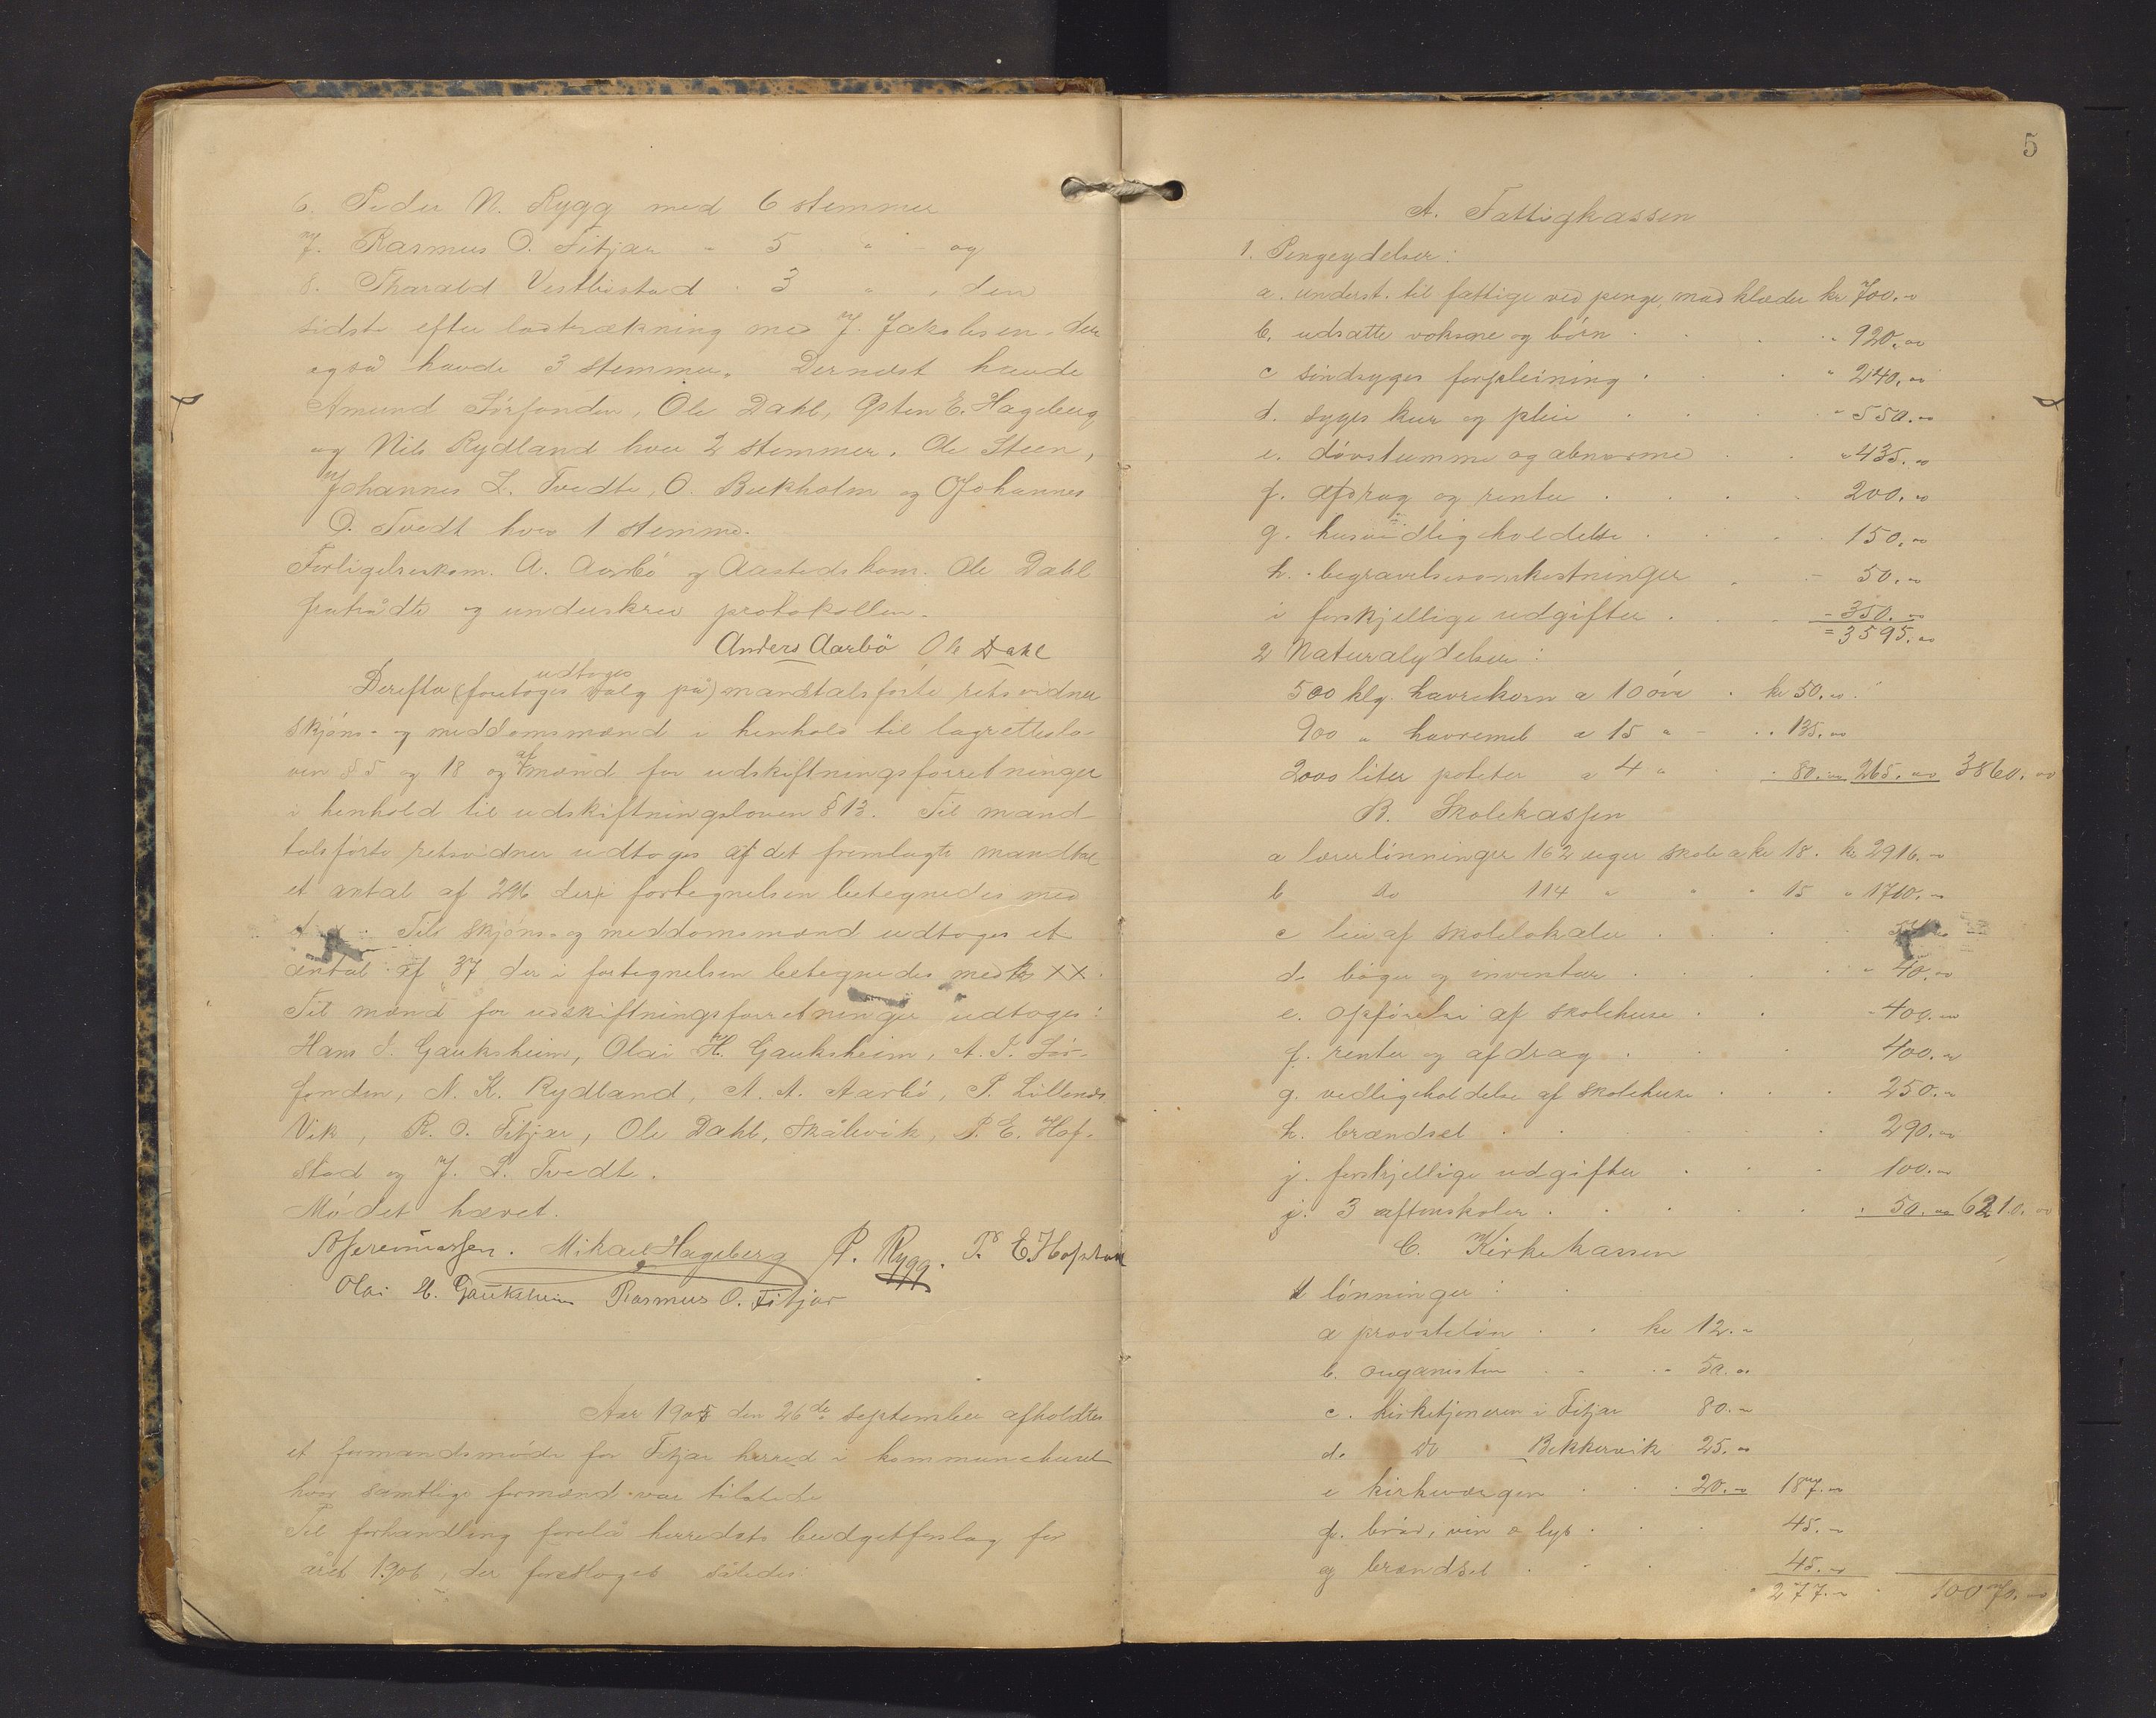 6. Peder N. Rygg med 6 stemmer
7. Rasmus O. Fitjar " 5 " og
8. Tharald Vestbøstad " 3 " , den
sidste efter lodtrækning med J. Jakobsen, der
også havde 3 stemmer. Dernæst havde
Amund Sørfonden, Ole Dahl, Østen E. Hageberg
og Nils Rydland hver 2 stemmer. Ole Steen,
Johannes L. Tvedte, O. Bækholm og Johannes
O. Tvedt hver 1 stemme.
Forligelseskom. A. Aarbø og Aastedskom. Ole Dahl
fratrådte og underskrev protokollen.
Anders Aarbö Ole Dahl
udtoges
Derefter (foretoges valg på) mandtalsførte retsvidner
skjøns- og meddomsmænd i henhold til lagretteslo-
ven § 5 og 18 og af mænd for udskiftningsforretninger
i henhold til udskiftningsloven § 13. Til mand-
talsførte retsvidner udtoges af det fremlagte mandtal
et antal af 296 der i fortegnelsen betegnedes med
Til skjøns- og meddomsmænd udtoges et
antal af 37 der i fortegnelsen betegnedes med XX.
Til mænd for udskiftningsforretninger udtoges:
Hans J. Gauksheim, Olai H. Gauksheim, A. J. Sør-
fonden, N. K. Rydland, A. A. Aarbø, P. Lillenes
Vik, R. O. Fitjar, Ole Dahl, Skålevik, P. E. Hof-
stad og J. L. Tvedte.
Mødet hævet.
Mikael Hageberg P. Rygg. P. E. Hofstad
Olai H. Gauksheim Rasmus O. Fitjar
Aar 1905 den 26de september afholdtes
et formandsmøde for Fitjar herred i kommunehuset
hvor samtlige formænd var tilstede
Til forhandling forelå herredets budgetforslag for
året 1906, der foresloges således:
5
A. Fattigkassen
1. Pengeydelser:
a. underst. til fattige ved penge, mad klæder kr 700.-
b. udsatte voksne og børn " 920.00
c sindsyges forpleining " 240.00
d. syges kur og pleie " 550.00
e. døvstumme og abnorme " 435.00
f. afdrag og renter 200.00
g. husvedligeholdelse 150.00
h. begravelsesomkostninger 50.00
i forskjellige udgifter 350.00
= 3595.00
2 Naturalydelser:
500 klg. havrekorn a 10 øre kr 50.00
900 " havremel a 15 " " 135.00
2000 liter poteter a 4 " " 80.00 265.00 3860.00
B. Skolekassen
a lærerlønninger 162 uger skole a kr 18. kr 2916.-
b do 114 " " " 15 " 1710.-
c leie af skolelokaler
d. bøger og inventar " 40.00
e. opførelse af skolehuse 400.00
f. renter og afdrag 400.-
g. vedligeholdelse af skolehuse 250.-
h. brændsel 290.00
j. forskjellige udgifter 100.00
j. 3 aftenskoler 50.00 6210.00
C. Kirkekassen
1 lønninger:
a provsteløn kr 12.-
b. organisten " 50.00
c. kirketjeneren i Fitjar 80.-
d. Do " Bekkervik 25.00
e kirkeværgen 20.- 187.00
f. brød, vin & lys 45.-
g brændsel 45.-
277.- 10070.00